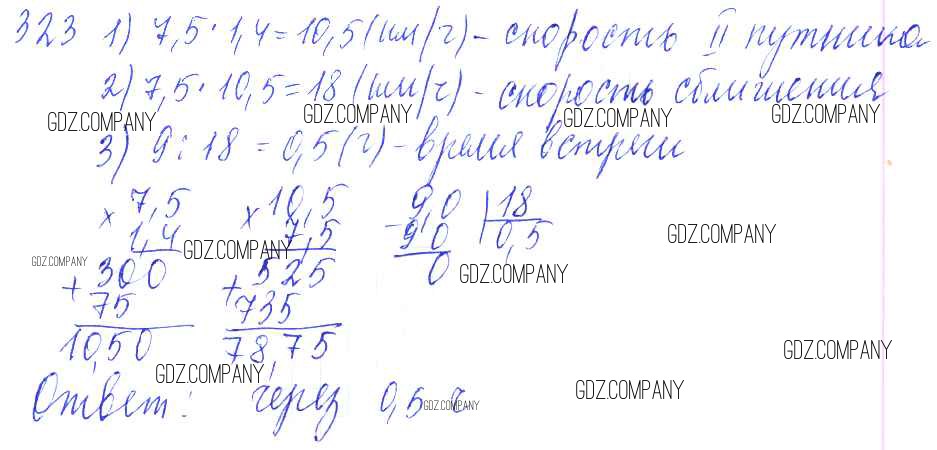 323 1) 7,5 · 1,4 = 10,5 (км/ч) - скорость II путника
2) 7,5 · 10,5 = 18 (км/ч) - скорость сближения
GDZ.COMPANY GDZ.COMPANY GDZ.COMPANY GDZ.COMPANY
3) 9 : 18 = 0,5 (ч) - время встречи
× 7,5 × 10,5 - 9,0 | 18
1,4 7,5 90 0,5
GDZ.COMPANY GDZ.COMPANY
GDZ.COMPANY + 300 + 525 0 GDZ.COMPANY
75 735
10,50 78,75
GDZ.COMPANY
GDZ.COMPANY GDZ.COMPANY
Ответ: через 0,5 ч
GDZ.COMPANY